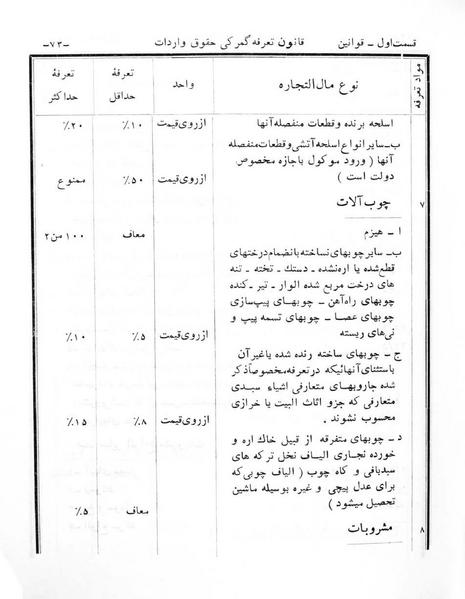 قسمت اول ـ قوانین قانون تعرفه گمرکی حقوق واردات ـ۷۳ـ
مواد تعرفه نوع مال‌التجاره واحد تعرفهٔ حداقل تعرفهٔ حداکثر
اسلحه برنده و قطعات منفصله آنها ازروی قیمت ۱۰٪ ۲۰٪
ب ـ سایر انواع اسلحه آتشی و قطعات منفصله
آنها ( ورود موکول باجازه مخصوص
دولت است ) ازروی قیمت ۵۰٪ ممنوع
۷ چوب آلات
ا ـ هیزم معاف ۱۰۰ من ۲
ب ـ سایر چوبهای نساخته بانضمام درختهای
قطع شده یا اره نشده ـ دستك ـ تخته ـ تنه
های درخت مربع شده الوار ـ تیر ـ کنده
چوبهای راه‌آهن ـ چوبهای پیپ سازی
چوبهای عصا ـ چوبهای تسمه پیپ و
نی‌های ریسته ازروی قیمت ۵٪ ۱۰٪
ج ـ چوبهای ساخته رنده شده یا غیر آن
باستثنای آنهائیکه در تعرفه مخصوصاً ذکر
شده جاروبهای متعارفی اشیاء سبدی
متعارفی که جزو اثاث البیت یا خرازی
محسوب نشوند . ازروی قیمت ۸٪ ۱۵٪
د ـ چوبهای متفرقه از قبیل خاك اره و
خورده نجاری الیاف نخل ترکه های
سبدبافی و کاه چوب ( الیاف چوبی که
برای عدل پیچی و غیره بوسیله ماشین
تحصیل میشود ) معاف ۵٪
۸ مشروبات